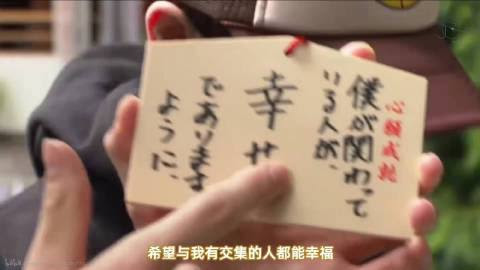 心願成就
僕が関わって
いる人が、
幸せ
であります
ように、
希望与我有交集的人都能幸福